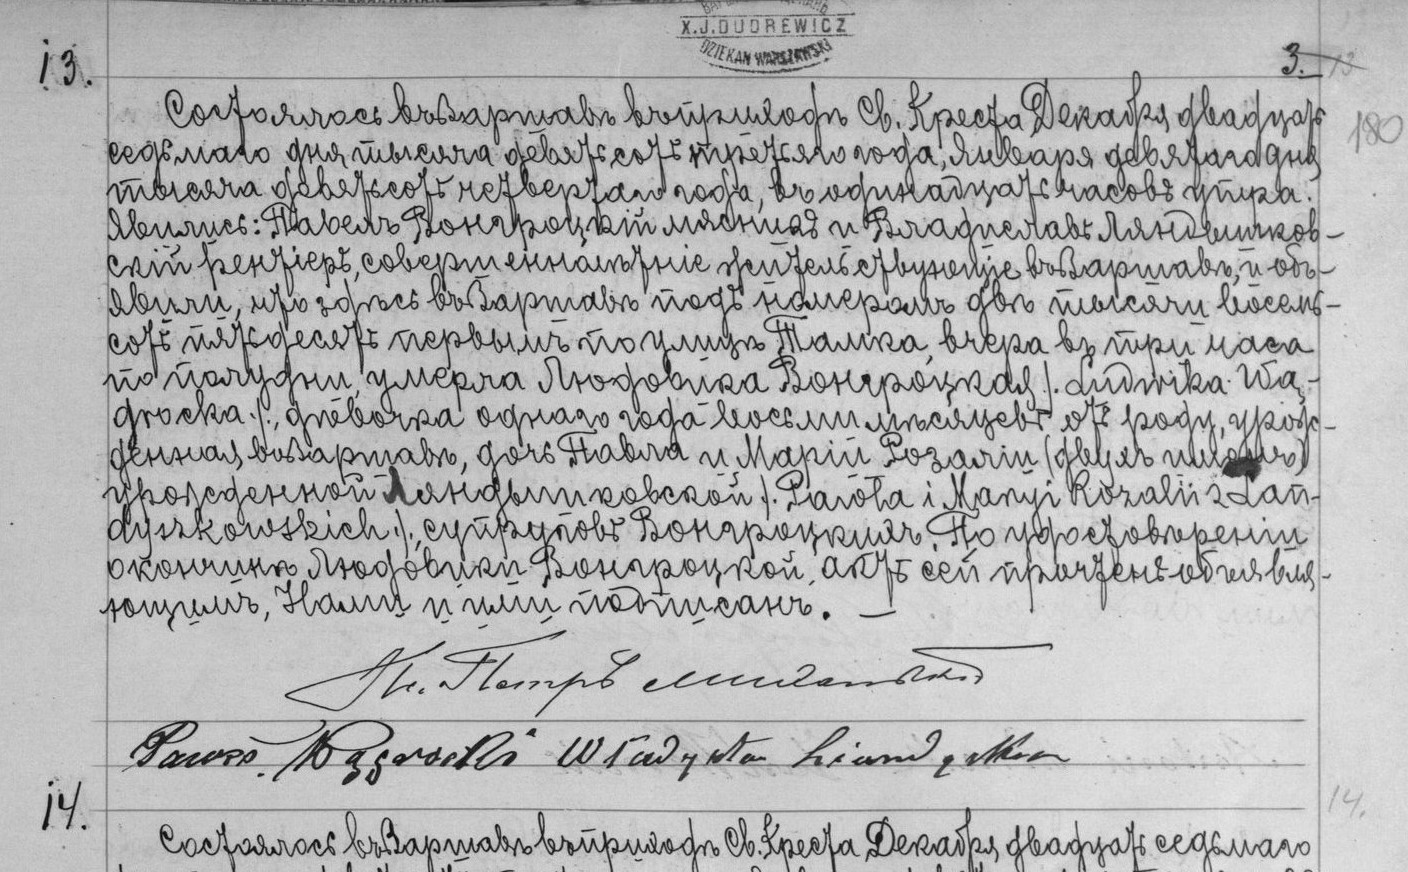 X.J.DUDREWICZ
DZIEKAN WARSZAWSKI
13.
3. 13
180
Состоялось въ Варшавѣ въ приходѣ Св. Креста Декабря двадцать
седьмаго дня тысяча девятьсотъ третьяго года, Января девятаго дня
тысяча девятьсотъ четвертаго года, въ одинадцать часовъ утра.
Явились: Павелъ Вонгроцкій мясникъ и Владиславъ Ляндышков-
скій рентіеръ, совершеннолѣтніе жительствующіе въ Варшавѣ, и объ-
явили, что здѣсь въ Варшавѣ подъ номеромъ двѣ тысячи восемь-
сотъ пятьдесятъ первымъ по улицѣ Тамка, вчера въ три часа
по полудни, умерла Людовика Вонгроцкая /. Ludwika Wą-
grocka ./, дѣвочка одного года восьми мѣсяцевъ отъ роду, урож-
денная въ Варшавѣ, дочь Павла и Маріи Розаліи (двухъ именъ)
урожденной Ляндышковской /. Pawła i Maryi Rozalii z Lan-
dyszkowskich ./, супруговъ Вонгроцкихъ. По удостовѣреніи
о кончинѣ Людовики Вонгроцкой, актъ сей прочтенъ объявля-
ющимъ, Нами и ими подписанъ. —
Кс. Петръ
Paweł Wągrocki Władysław
14.
14.
Состоялось въ Варшавѣ въ приходѣ Св. Креста Декабря двадцать седьмаго